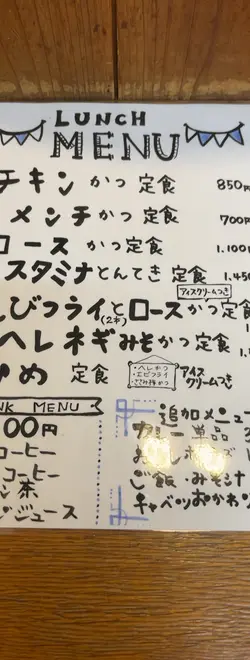 LUNCH
MENU
チキン かつ 定食 850
メンチかつ 定食 700
ロース かつ 定食 1,100
スタミナとんてき 定食 1,450
アイスクリームつき
びフライと(2本)ロースかつ定食
ヘレネギみそかつ定食
め 定食
・ヘレかつ
・エビフライ
アイス
クリームつき
NK MENU
00円
コーヒー
コーヒー
茶
ジュース
追加メニュ
カレー 単品
ご飯・みそ汁
キャベツおかわり